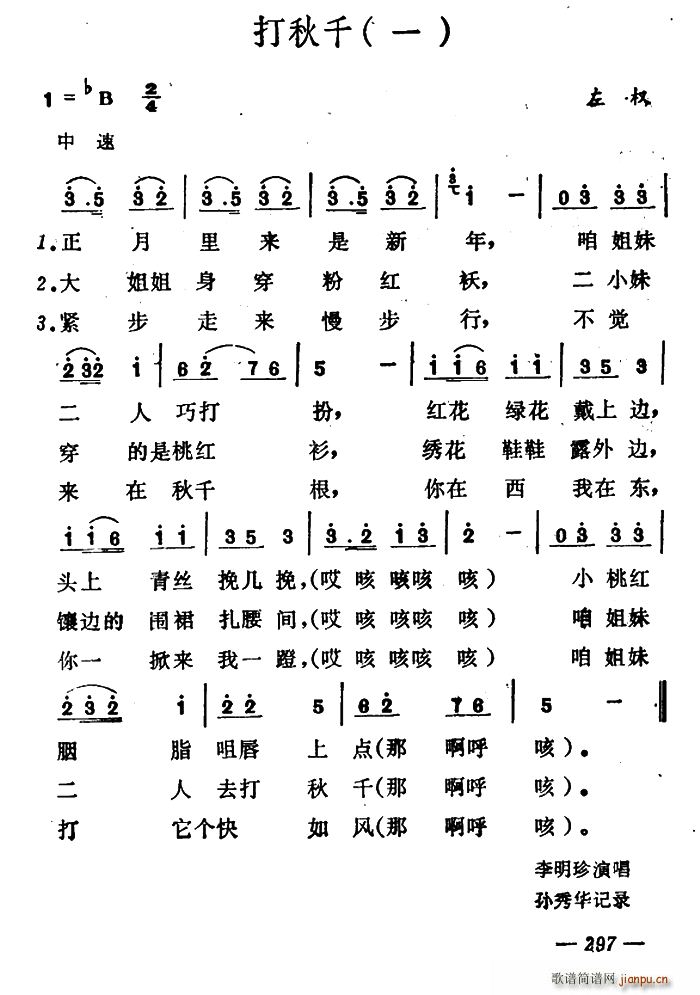 打秋千(一)
1=♭B 2/4 左权
中速
3.5 3 2 | 3.5 3 2 | 3.5 3 2 | 1 — | 0 3 3 3 |
1.正月里来是新年，咱姐妹
2.大姐姐身穿粉红袄，二小妹
3.紧步走来慢步行，不觉
2 3 2 1 | 6 2 7 6 | 5 — | 1 1 6 1 1 | 3 5 3 |
二人巧打扮，红花绿花戴上边，
穿的是桃红衫，绣花鞋鞋露外边，
来在秋千根，你在西我在东，
1 1 6 1 1 | 3 5 3 | 3.2 1 3 | 2 — | 0 3 3 3 |
头上青丝挽几挽，(哎咳咳咳咳)小桃红
镶边的围裙扎腰间，(哎咳咳咳咳)咱姐妹
你一掀来我一蹬，(哎咳咳咳咳)咱姐妹
2 3 2 1 | 2 2 5 | 6 2 7 6 | 5 — ‖
胭脂咀唇上点(那啊呼咳)。
二人去打秋千(那啊呼咳)。
打它个快如风(那啊呼咳)。
李明珍演唱
孙秀华记录
— 297 —
歌谱简谱网 jianpu.cn